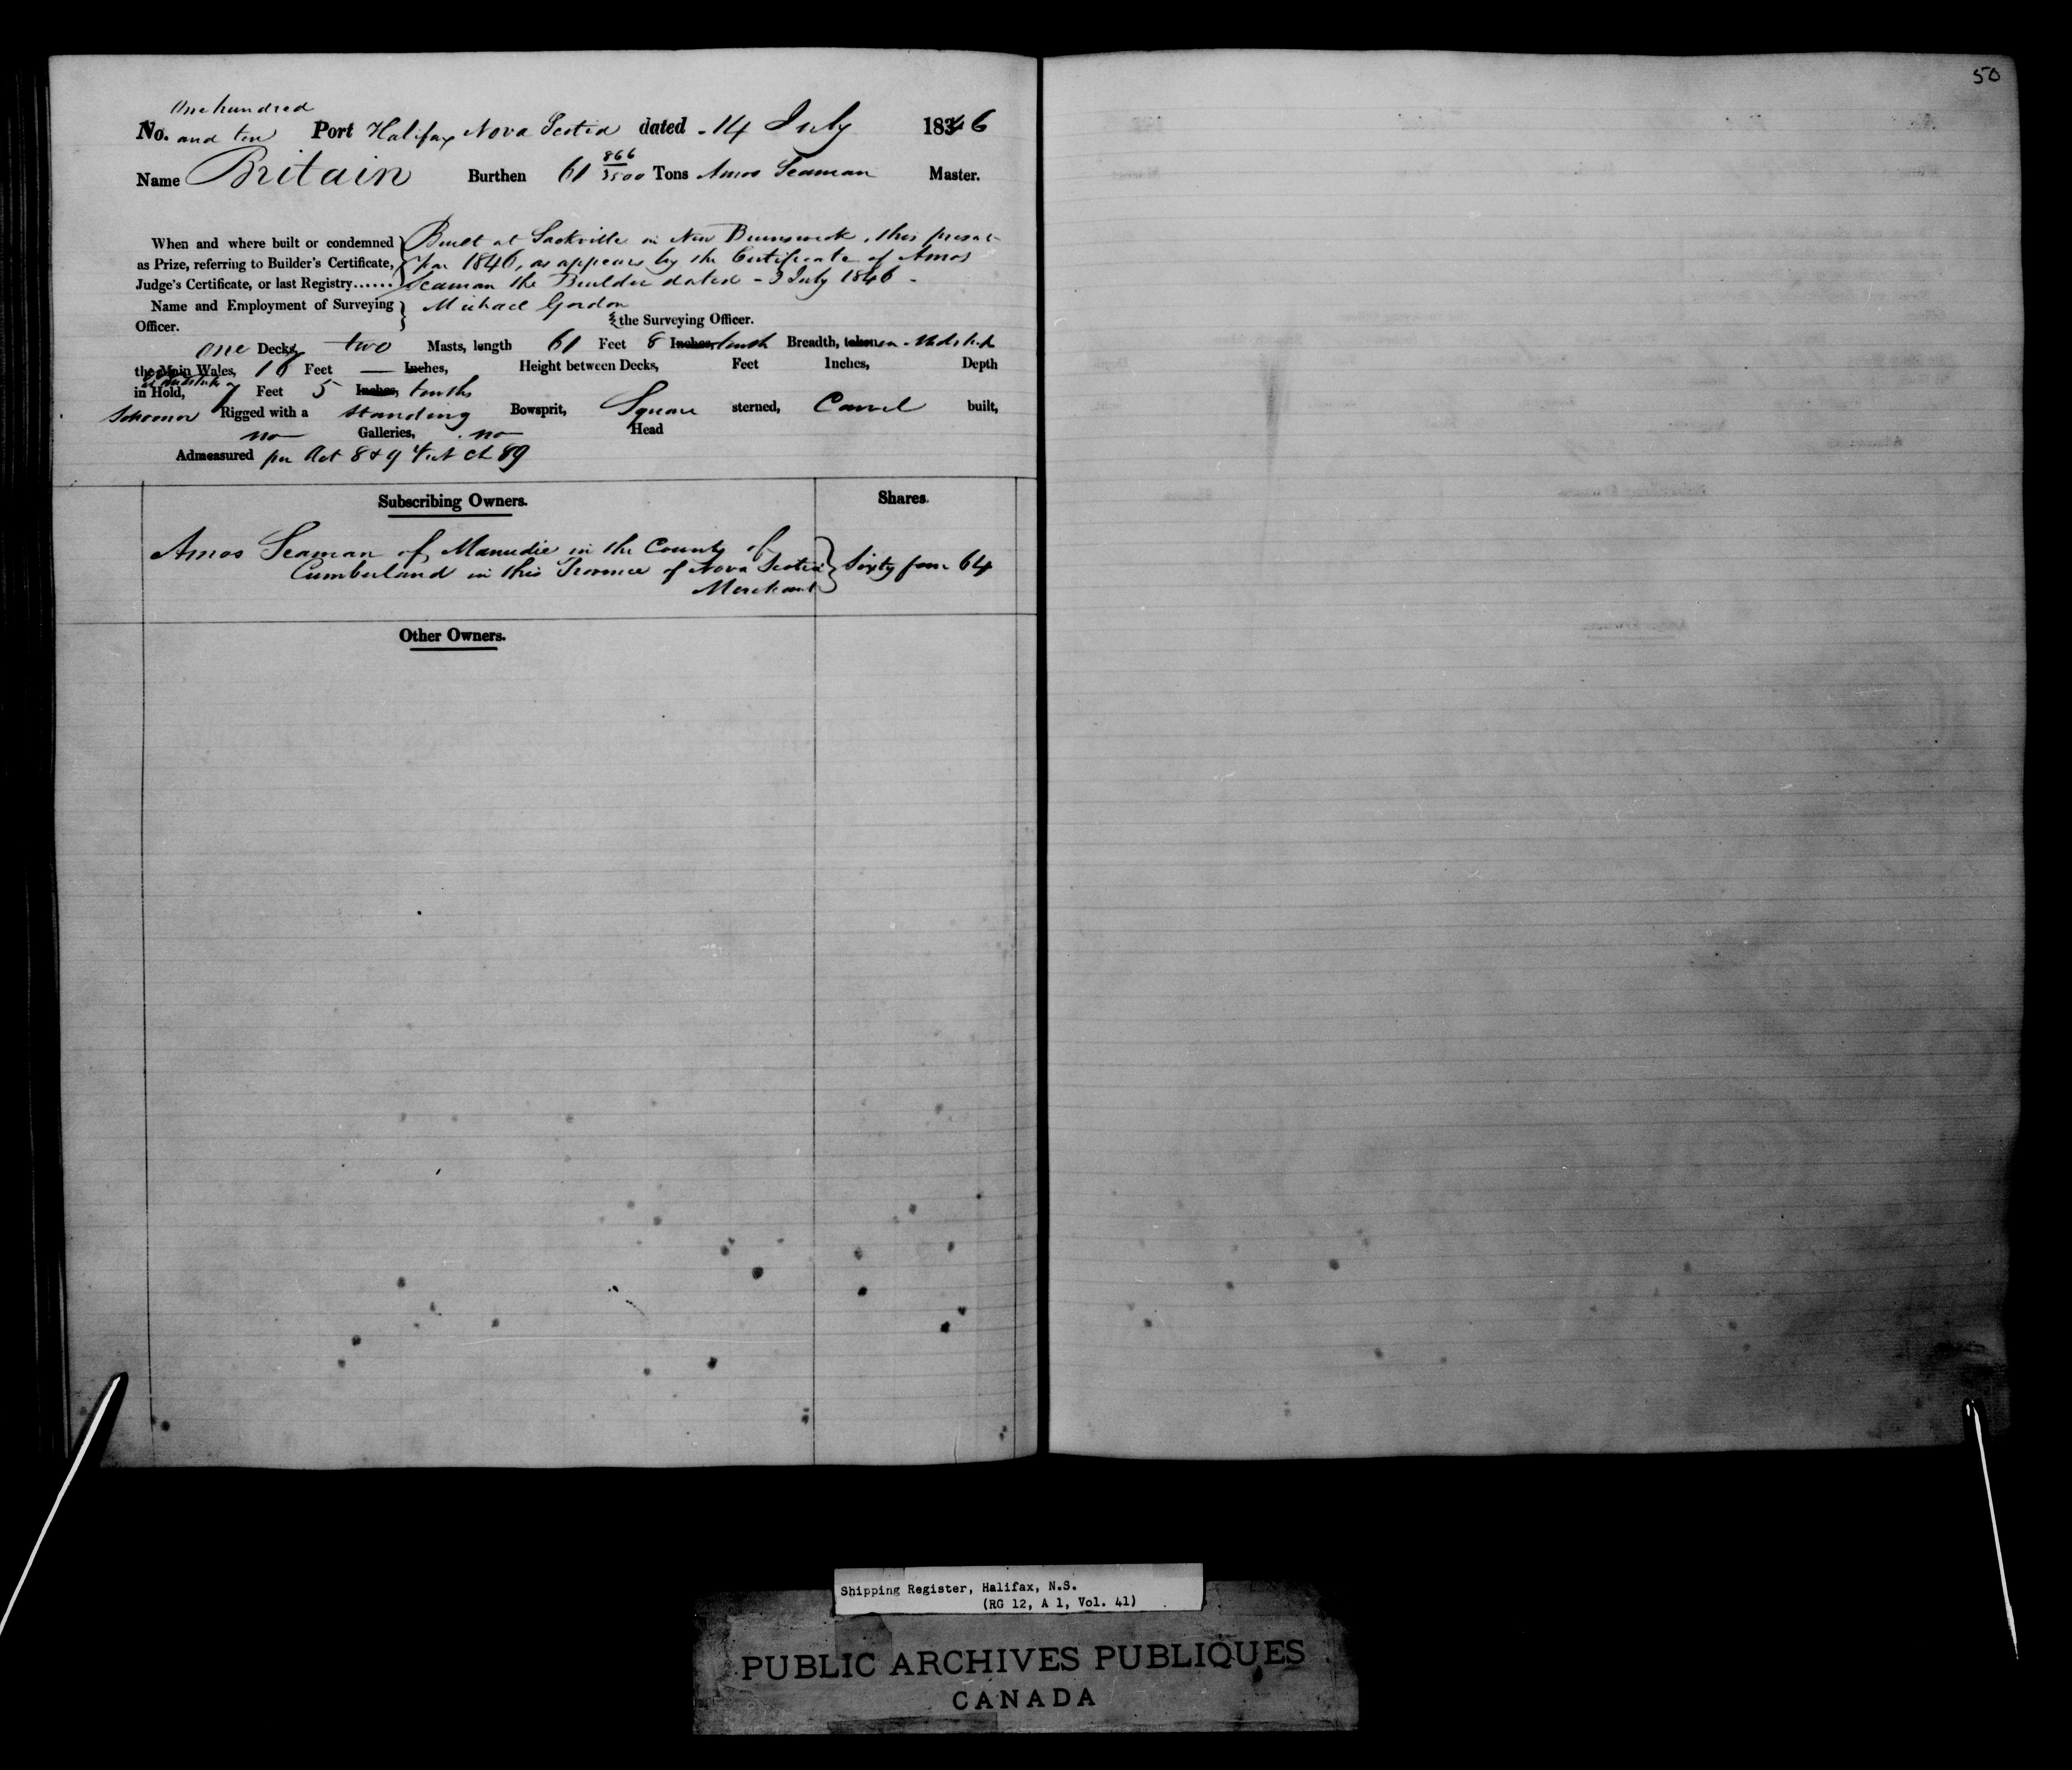 50
One hundred
No. and ten Port Halifax Nova Scotia dated - 14 July 1846
Name Britain Burthen 61 866/3500 Tons Amos Seaman Master.
When and where built or condemned } Built at Sackville in New Brunswick, this present
as Prize, referring to Builder's Certificate, year 1846, as appears by the Certificate of Amos
Judge's Certificate, or last Registry...... Seaman the Builder dated - 3 July 1846 -
Name and Employment of Surveying } Michael Gordon
Officer. the Surveying Officer.
one Deck, two Masts, length 61 Feet 8 Inches, tenths Breadth, taken in Midships
the Main Wales, 16 Feet — Inches, Height between Decks, Feet Inches, Depth
in Hold, at midships 7 Feet 5 Inches, tenths
Schooner Rigged with a standing Bowsprit, Square sterned, Carvel built,
no Galleries, no Head
Admeasured per Act 8 & 9 Vict Ch 89
Subscribing Owners. Shares.
Amos Seaman of Manudie in the County of
Cumberland in this Province of Nova Scotia } Sixty four 64
Merchant
Other Owners.
Shipping Register, Halifax, N.S.
(RG 12, A 1, Vol. 41)
PUBLIC ARCHIVES PUBLIQUES
CANADA